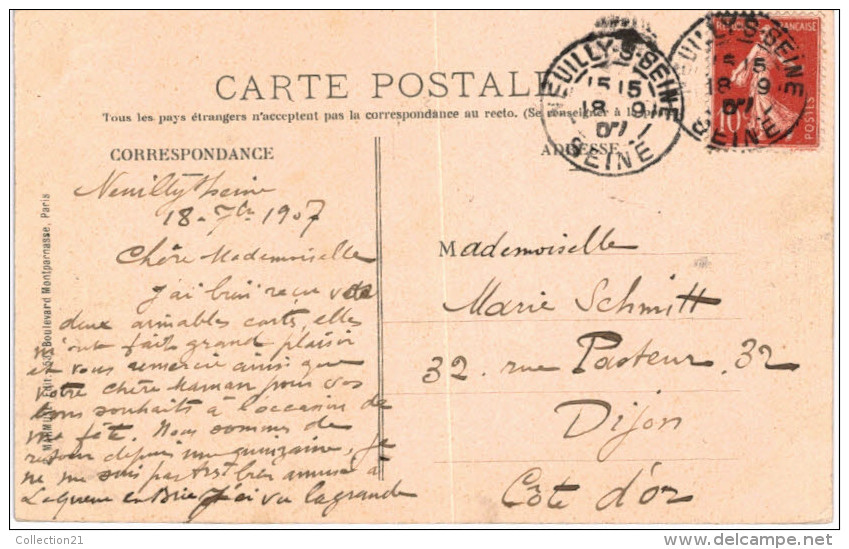 CARTE POSTALE
Tous les pays étrangers n'acceptent pas la correspondance au recto. (Se renseigner à la poste
CORRESPONDANCE
ADRESSE
Neuilly s/ Seine
18 - 7bre 1907
Chère Mademoiselle
J'ai bien reçu vos
deux aimables cartes, elles
m'ont fait grand plaisir
et vous remercie ainsi que
votre chère Maman pour vos
bons souhaits à l'occasion de
ma fête. Nous sommes de
retour depuis une quinzaine, je
ne me suis pas très bien amusé à
La Queue en Brie J'ai vu la grande
Mademoiselle
Marie Schmitt
32. rue Pasteur. 32
Dijon
Côte d'or
Boulevard Montparnasse, Paris
NEUILLY-S-SEINE
15 15
18 9
07
SEINE
NEUILLY-S-SEINE
15 15
18 9
07
SEINE
10c
POSTES
Collection21
delcampe.net